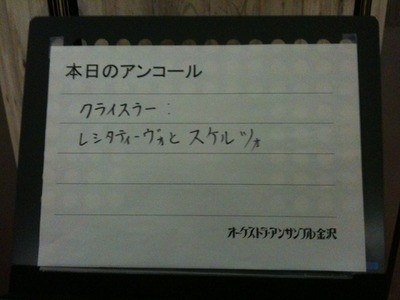 本日のアンコール
クライスラー：
レシタティーヴォと スケルツォ
オーケストラ・アンサンブル金沢